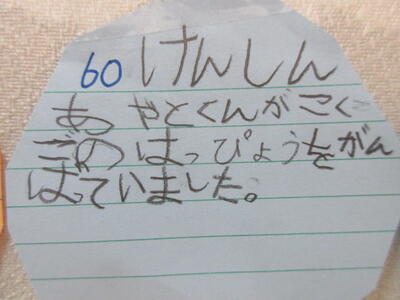 60 けんしん
あやとくんがこく
ごのはっぴょうをがん
ばていました。